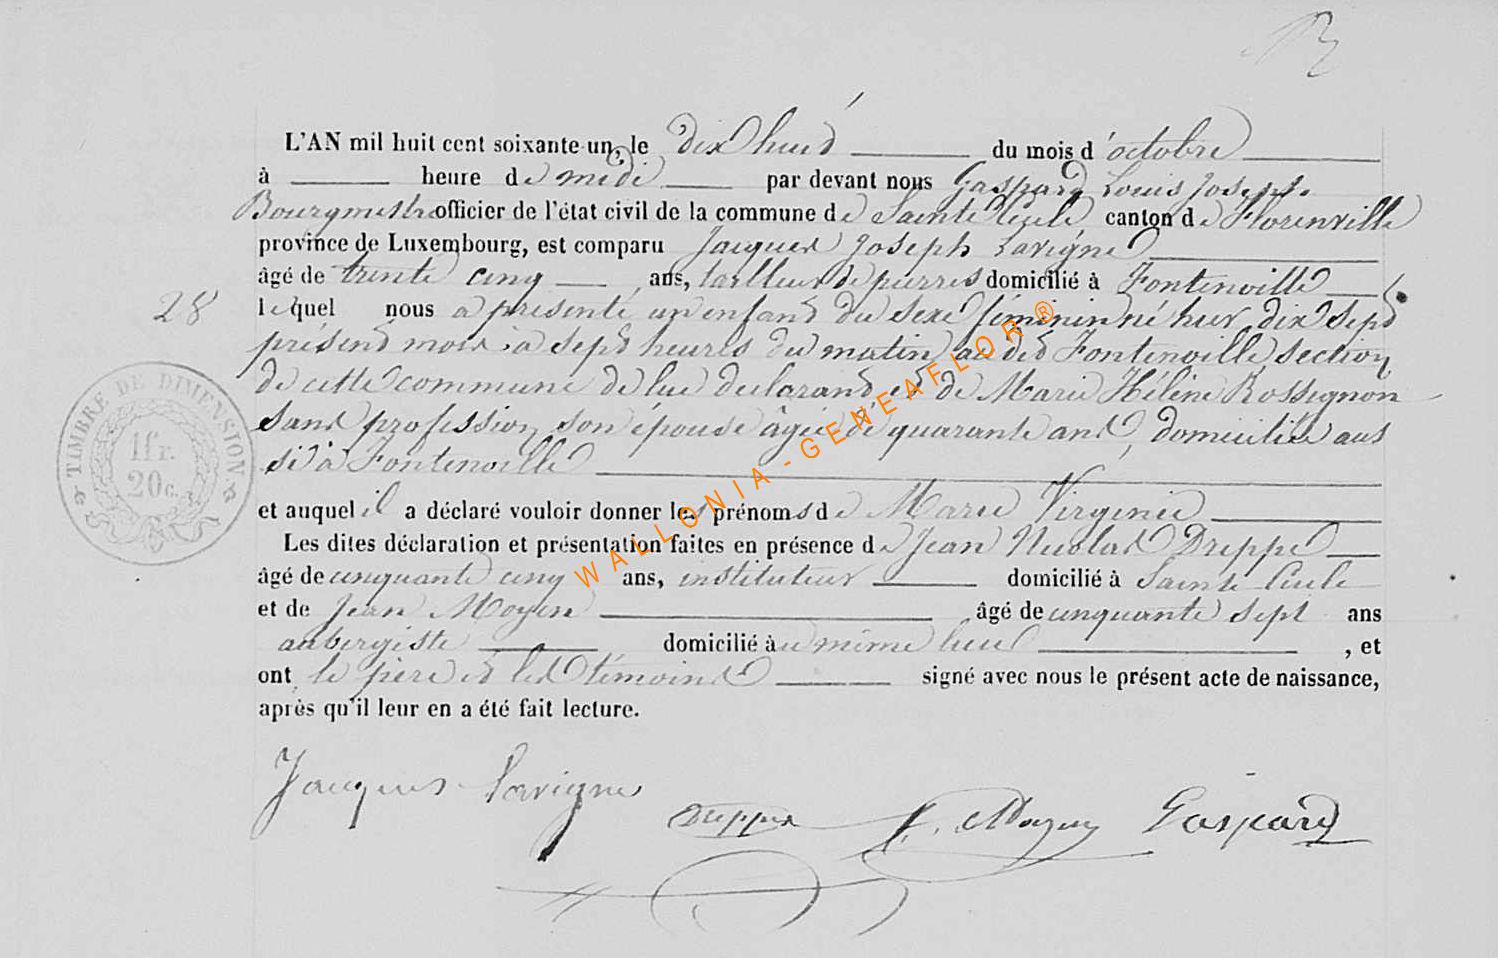 L'AN mil huit cent soixante-un, le dix huit du mois d'octobre
à heure de midi par devant nous Gaspard Louis Joseph
Bourgmestre officier de l'état civil de la commune de Sainte Cécile canton de Florenville
province de Luxembourg, est comparu Jacques Joseph Lavigne
âgé de trente cinq ans, tailleur de pierres domicilié à Fontenoille
28 lequel nous a présenté un enfant du sexe féminin né hier dix sept
présent mois à sept heures du matin au dit Fontenoille, section
de cette commune de lui déclarant et de Marie Hélène Rossignon
sans profession, son épouse âgée de quarante ans, domiciliée aus
si à Fontenoille
et auquel il a déclaré vouloir donner les prénoms de Marie Virginie
Les dites déclaration et présentation faites en présence de Jean Nicolas Dreppe
âgé de cinquante cinq ans, instituteur domicilié à Sainte Cécile
et de Jean Moyen âgé de cinquante sept ans
aubergiste domicilié au même lieu, et
ont le père et les témoins signé avec nous le présent acte de naissance,
après qu'il leur en a été fait lecture.
Jacques Lavigne
Dreppe J. Moyen Gaspard
TIMBRE DE DIMENSION
1fr.
20c.
WALLONIA-GENEAFLOR®